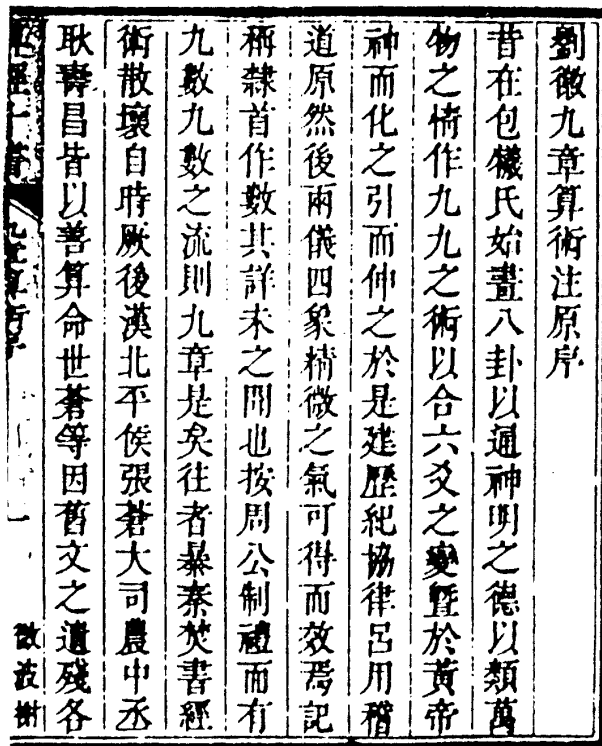 劉徽九章算術注原序
昔在包犧氏始畫八卦以通神明之德以類萬
物之情作九九之術以合六爻之變暨於黃帝
神而化之引而伸之於是建歷紀協律呂用稽
道原然後兩儀四象精微之氣可得而效焉記
稱隸首作數其詳未之聞也按周公制禮而有
九數九數之流則九章是矣往者暴秦焚書經
術散壞自時厥後漢北平侯張蒼大司農中丞
耿壽昌皆以善算命世蒼等因舊文之遺殘各
算經十書
九章算術序
一
微波榭